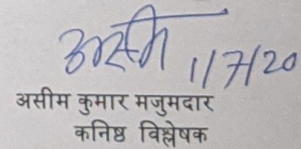 असीम 1/7/20
असीम कुमार मजुमदार
कनिष्ठ विश्लेषक